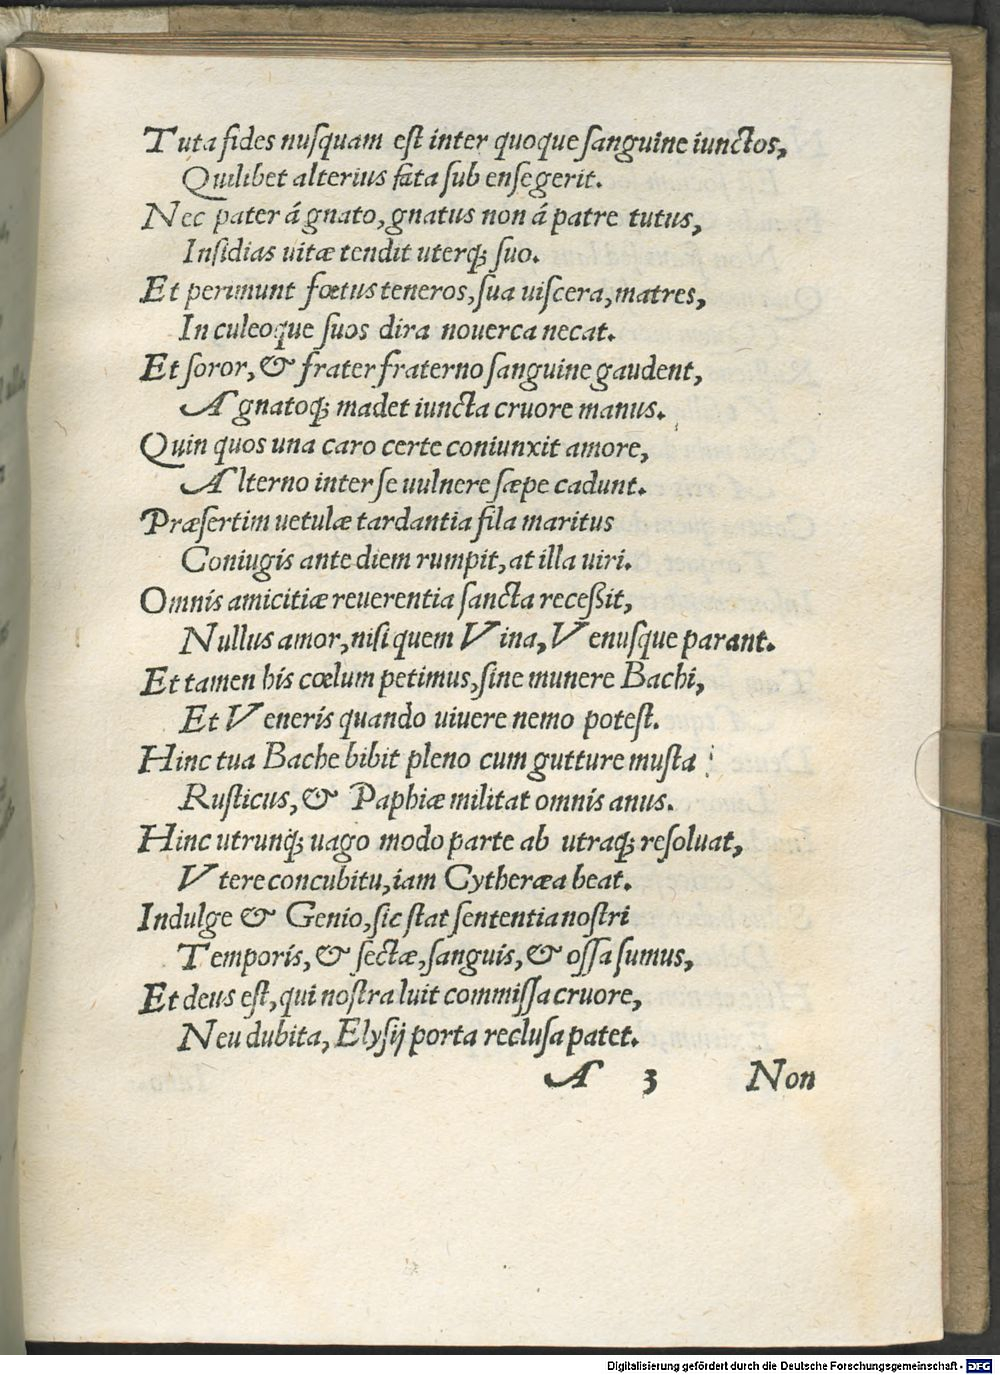 Tuta fides nusquam est inter quoque sanguine iunctos,
Quilibet alterius fata sub ense gerit.
Nec pater á gnato, gnatus non á patre tutus,
Insidias uitæ tendit uterq; suo.
Et perimunt fœtus teneros, sua uiscera, matres,
In culeoque suos dira nouerca necat.
Et soror, & frater fraterno sanguine gaudent,
Agnatoq; madet iuncta cruore manus.
Quin quos una caro certe coniunxit amore,
Alterno inter se uulnere sæpe cadunt.
Præsertim uetulæ tardantia fila maritus
Coniugis ante diem rumpit, at illa uiri.
Omnis amicitiæ reuerentia sancta receßit,
Nullus amor, nisi quem Vina, Venusque parant.
Et tamen his cœlum petimus, sine munere Bachi,
Et Veneris quando uiuere nemo potest.
Hinc tua Bache bibit pleno cum gutture musta
Rusticus, & Paphiæ militat omnis anus.
Hinc utrunq; uago modo parte ab utraq; resoluat,
Vtere concubitu, iam Cytheræa beat.
Indulge & Genio, sic stat sententia nostri
Temporis, & sectæ, sanguis, & ossa sumus,
Et deus est, qui nostra luit commissa cruore,
Neu dubita, Elysij porta reclusa patet.
A 3 Non
Digitalisierung gefördert durch die Deutsche Forschungsgemeinschaft - DFG